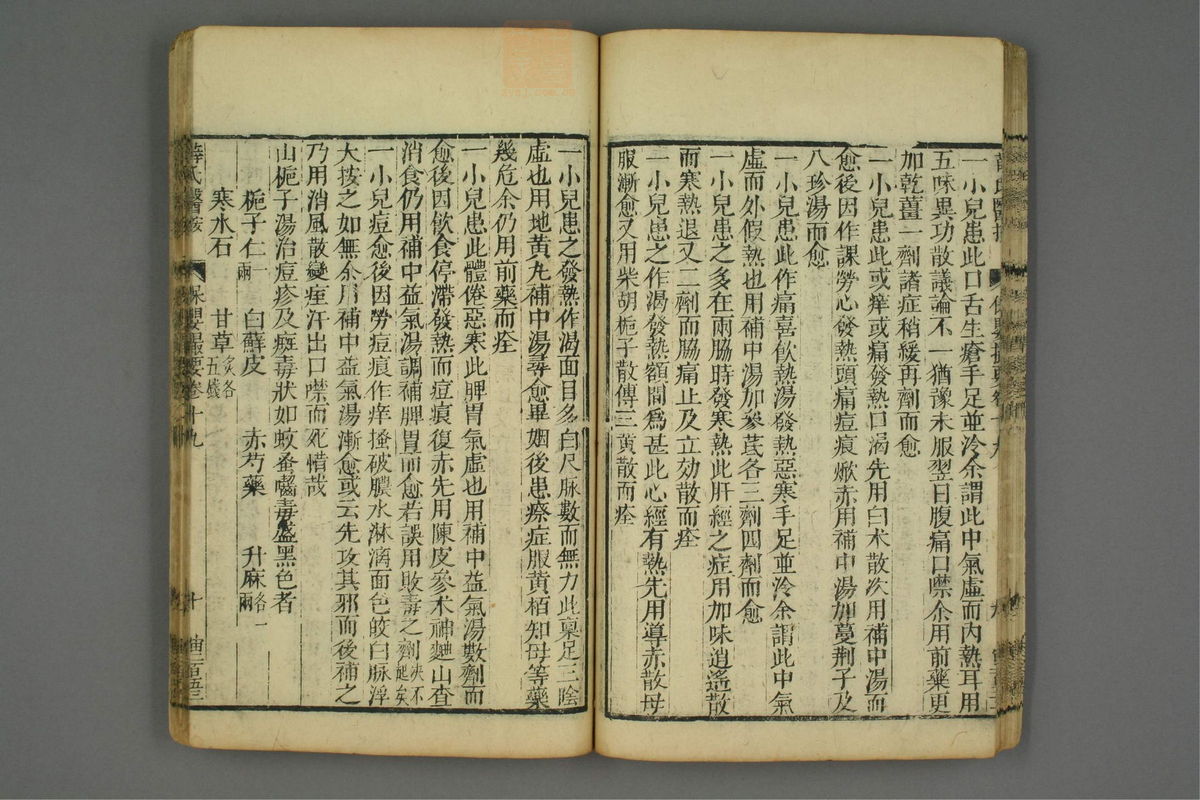 一小兒患此口舌生瘡手足並冷余謂此中氣虛而內熱耳用
五味異功散議論不一猶豫未服翌日腹痛口噤余用前藥更
加乾薑一劑諸症稍緩再劑而愈
一小兒患此或痒或痛發熱口渴先用白朮散次用補中湯而
愈後因作課勞心發熱頭痛痘痕焮赤用補中湯加蔓荆子及
八珍湯而愈
一小兒患此作痛喜飲熱湯發熱惡寒手足並冷余謂此中氣
虛而外假熱也用補中湯加參芪各三劑四劑而愈
一小兒患之多在兩脇時發寒熱此肝經之症用加味逍遙散
而寒熱退又二劑而脇痛止及立効散而痊
一小兒患之作渴發熱額間爲甚此心經有熱先用導赤散母
服漸愈又用柴胡梔子散傅三黃散而痊
一小兒患之發熱作渴面目多白尺脉數而無力此稟足三陰
虛也用地黃丸補中湯尋愈畢姻後患瘵症服黃栢知母等藥
幾危余仍用前藥而痊
一小兒患此體倦惡寒此脾胃氣虛也用補中益氣湯數劑而
愈後因飲食停滯發熱而痘痕復赤先用陳皮參朮神麯山查
消食仍用補中益氣湯調補脾胃而愈若誤用敗毒之劑決不
起矣
一小兒痘愈後因勞痘痕作痒搔破膿水淋漓面色皎白脉浮
大按之如無余用補中益氣湯漸愈或云先攻其邪而後補之
乃用消風散變痙汗出口噤而死惜哉
山梔子湯治痘疹及癍毒狀如蚊蚤囓毒盛黑色者
梔子仁一兩 白蘚皮 赤芍藥 升麻各一兩
寒水石 甘草炙各五錢
薛氏醫按 保嬰撮要卷十九 十